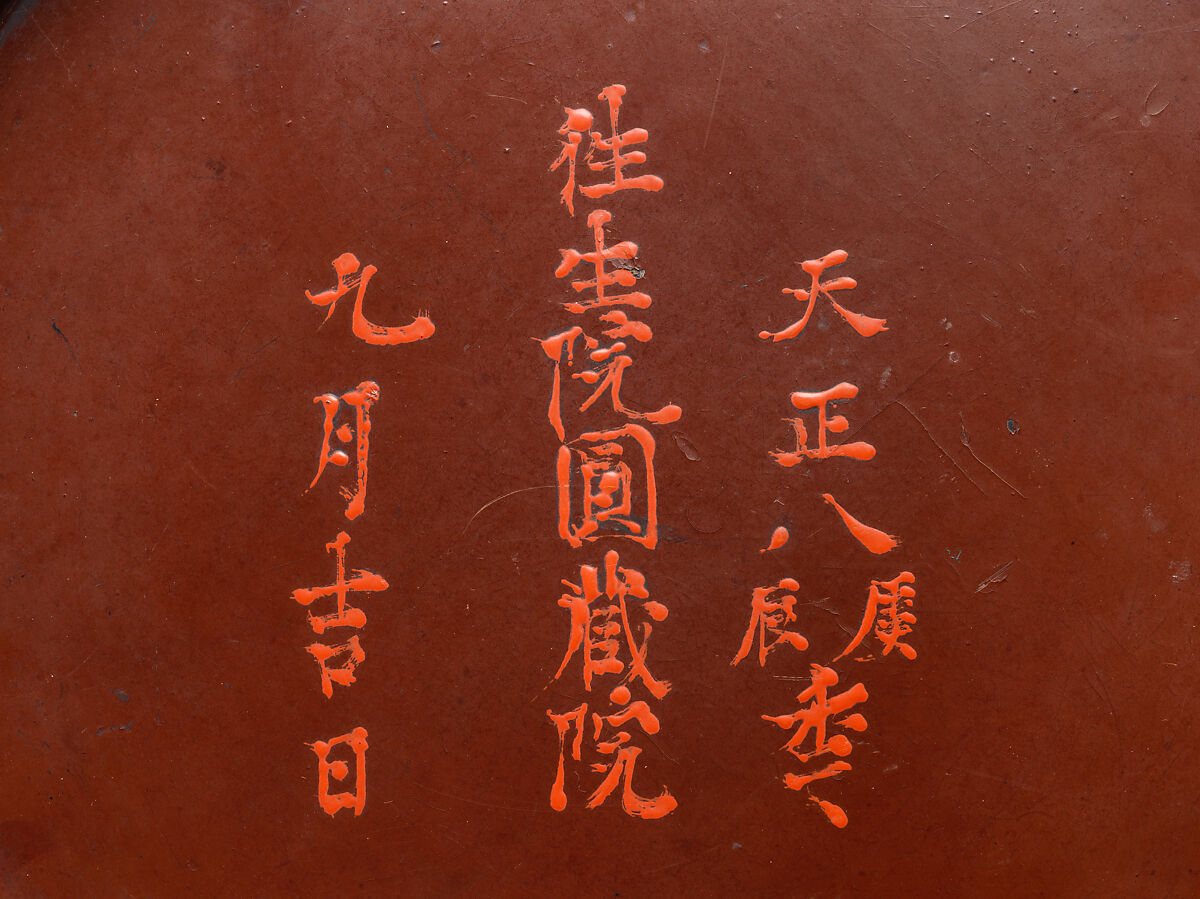 天正八庚辰季
往生院圓蔵院
九月吉日